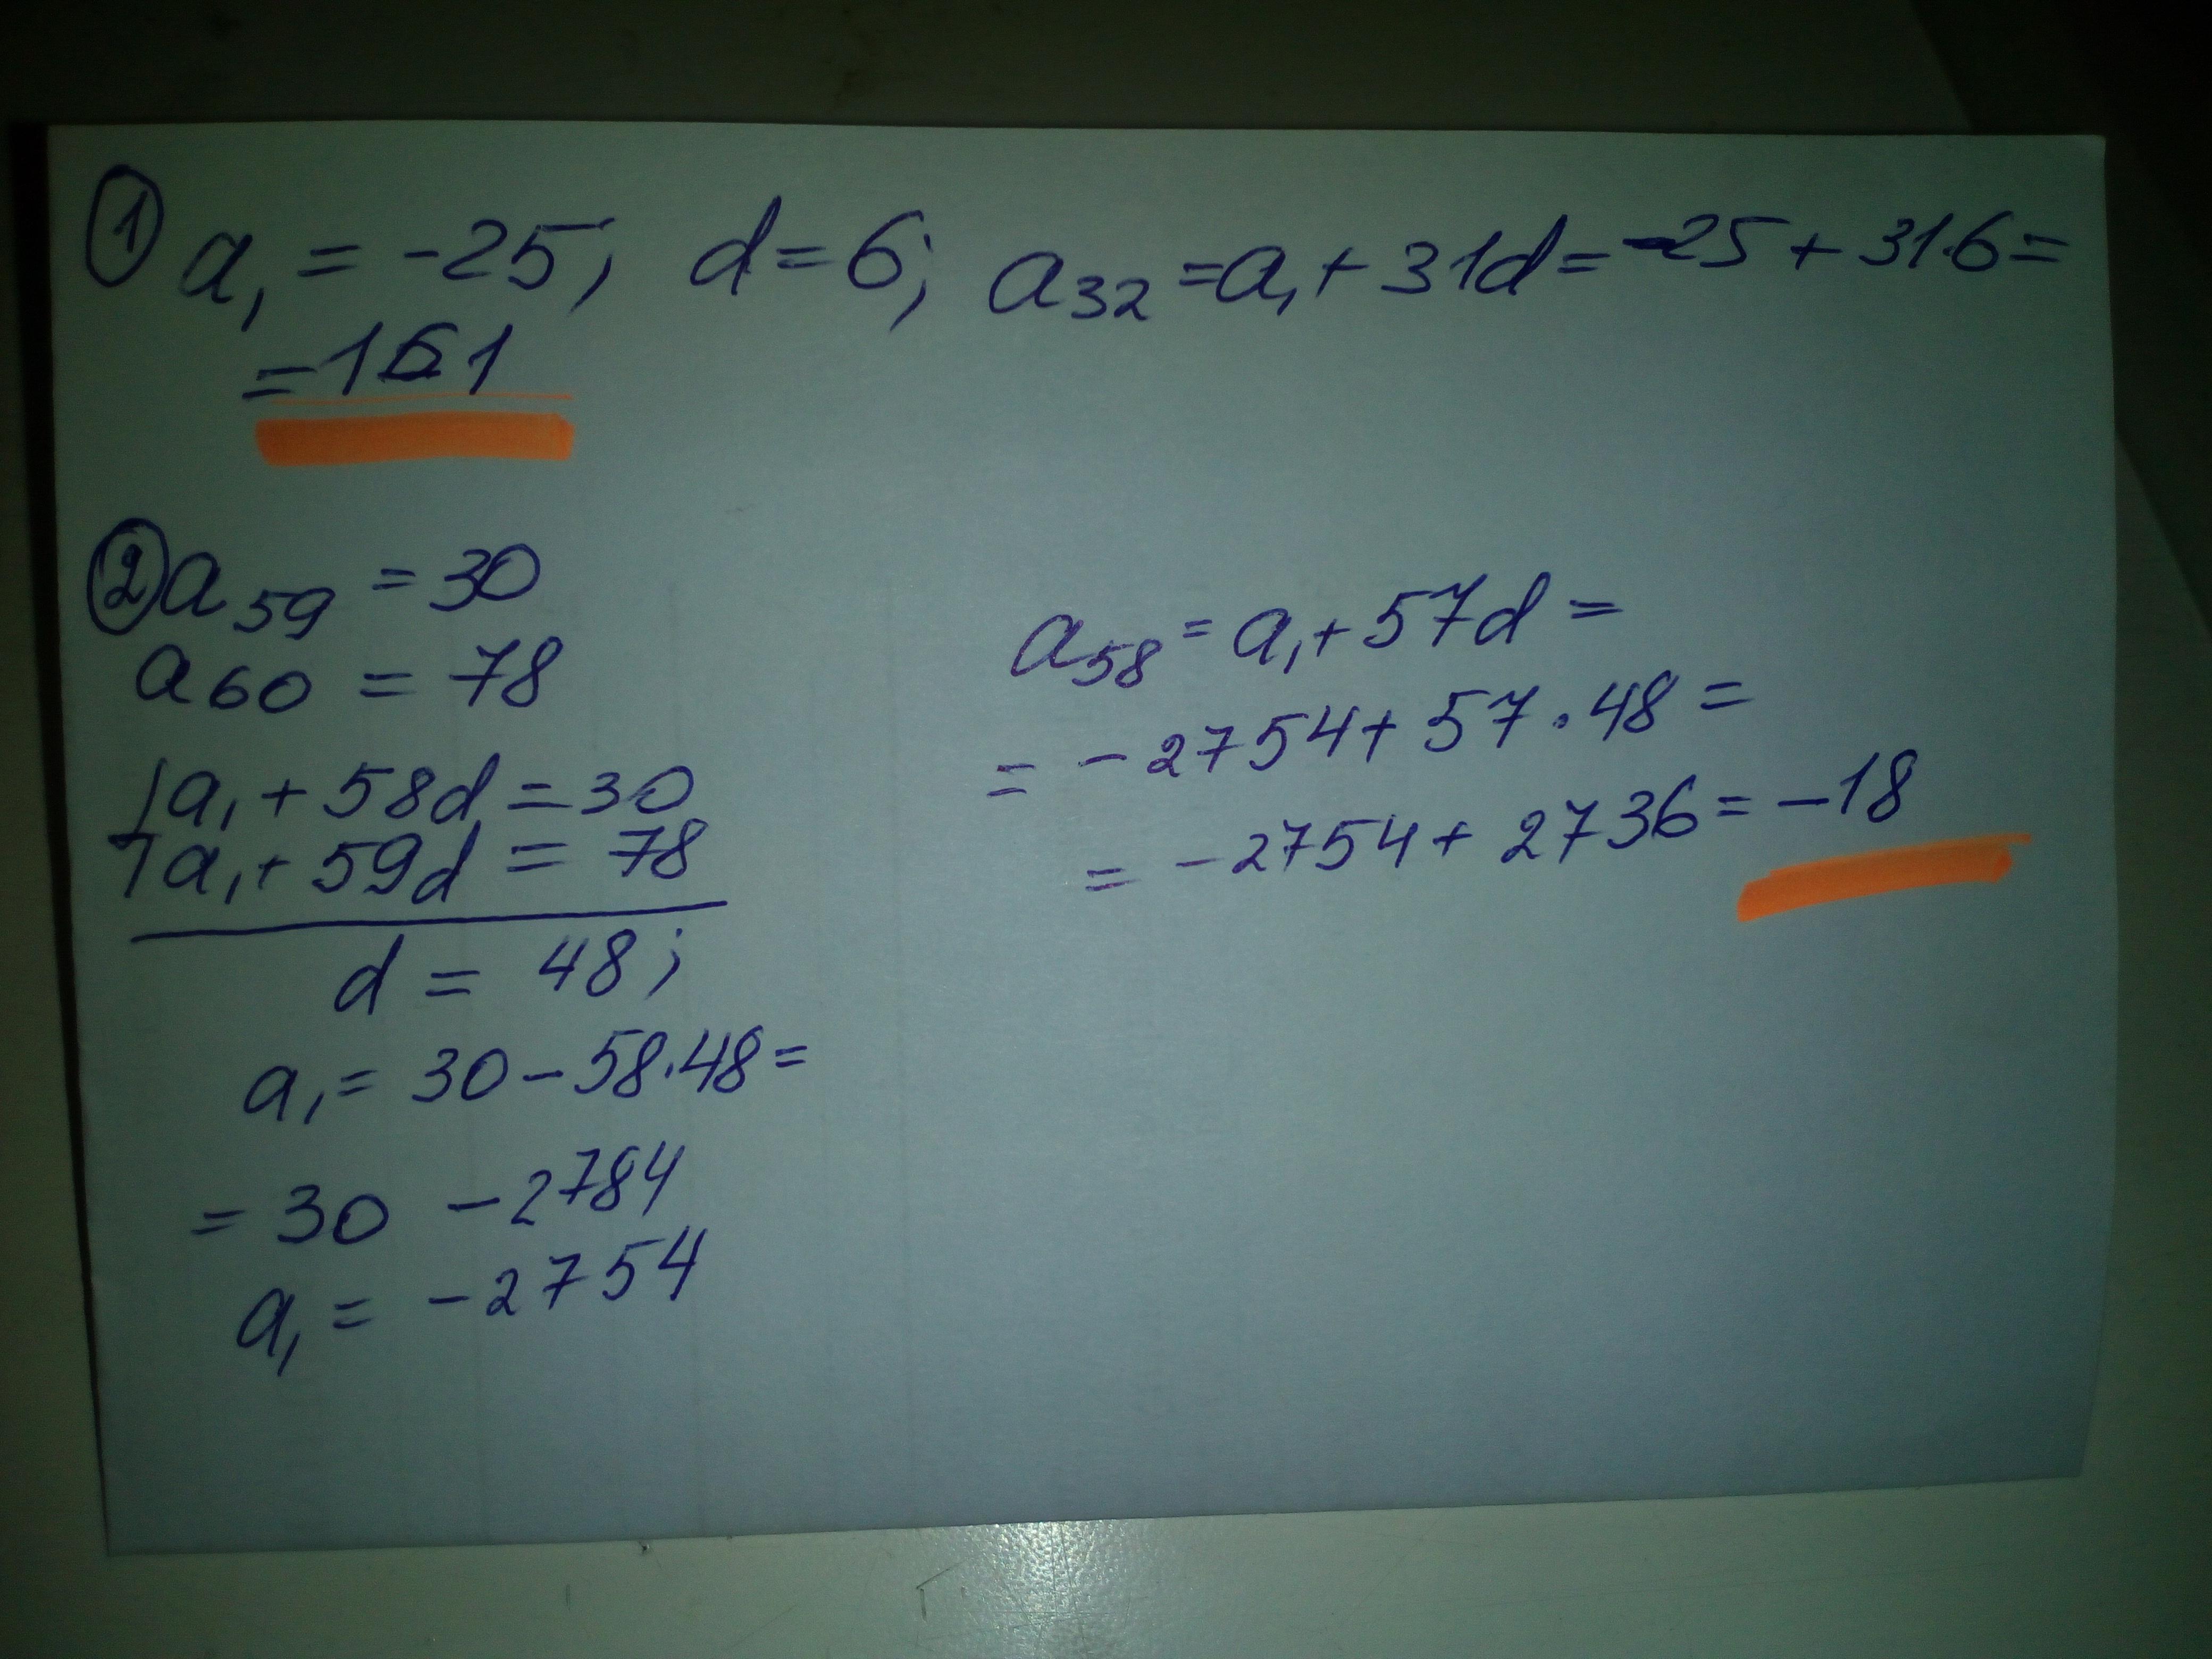 ① a₁ = -25; d = 6; a₃₂ = a₁ + 31d = -25 + 31·6 =
= 161
② a₅₉ = 30
a₆₀ = 78
a₁ + 58d = 30
a₁ + 59d = 78
d = 48;
a₁ = 30 - 58·48 =
= 30 - 2784
a₁ = -2754
a₅₈ = a₁ + 57d =
= -2754 + 57·48 =
= -2754 + 2736 = -18